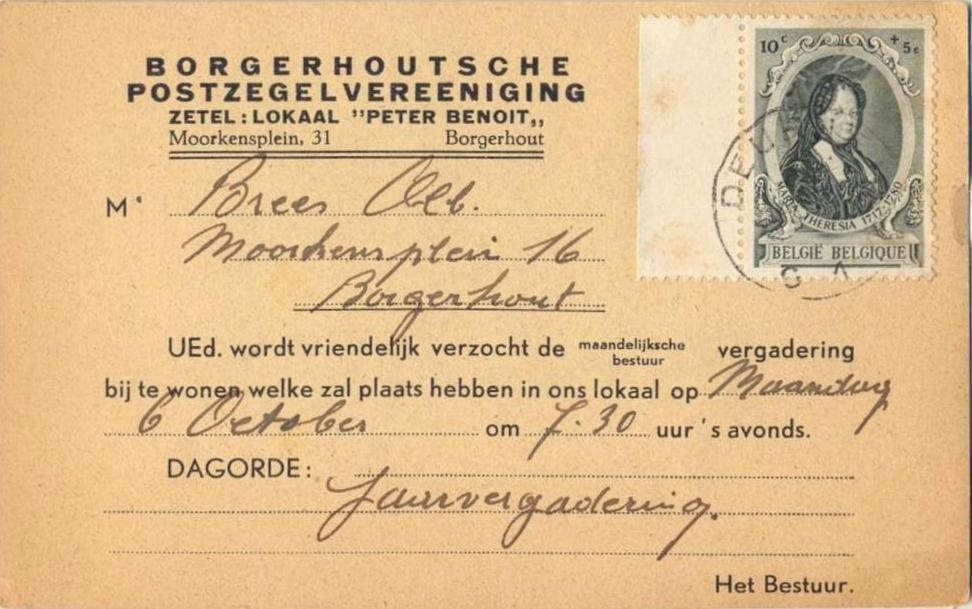 BORGERHOUTSCHE
POSTZEGELVEREENIGING
ZETEL: LOKAAL "PETER BENOIT,,
Moorkensplein, 31 Borgerhout
Mr Brees Alb.
Moorkensplein 16
Borgerhout
UEd. wordt vriendelijk verzocht de maandelijksche vergadering
bestuur
bij te wonen welke zal plaats hebben in ons lokaal op Maandag
6 October om 7.30 uur 's avonds.
DAGORDE:
Jaarvergadering.
Het Bestuur.
10c +5c
MARIA THERESIA 1717-1780
BELGIË BELGIQUE
DEU
C 1